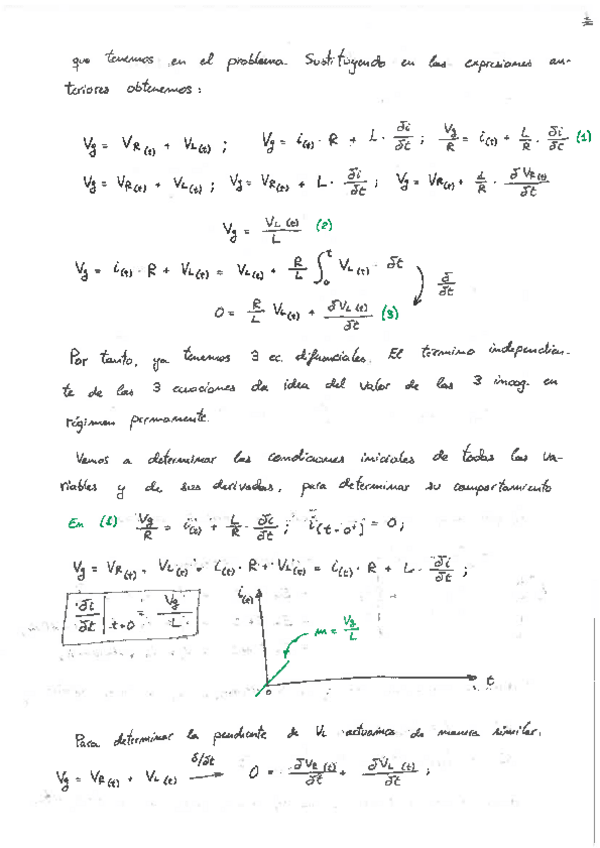 que tenemos en el problema. Sustituyendo en las expresiones an-
teriores obtenemos:
Vg = VR(t) + VL(t) ; Vg = i(t) · R + L · δi/δt ; Vg/R = i(t) + L/R · δi/δt (1)
Vg = VR(t) + VL(t) ; Vg = VR(t) + L · δi/δt ; Vg = VR(t) + L/R · δVR(t)/δt
Vg = VL(t)/L (2)
Vg = i(t) · R + VL(t) = VL(t) + R/L ∫₀ᵗ VL(t) · δt δ/δt
0 = R/L VL(t) + δVL(t)/δt (3)
Por tanto, ya tenemos 3 ec. difrenciales. El termino independien-
te de las 3 ecuaciones da idea del valor de las 3 incog. en
régimen permanente.
Vamos a determinar las condiciones iniciales de todas las va-
riables y de sus derivadas, para determinar su comportamiento
En (1) Vg/R = i(t) + L/R · δi/δt ; i(t=0⁺) = 0;
Vg = VR(t) + VL(t) = i(t) · R + VL(t) = i(t) · R + L · δi/δt ;
δi/δt | t=0 = Vg/L
i(t)
m = Vg/L
0
t
Para determinar la pendiente de VL actuamos de manera similar.
Vg = VR(t) + VL(t) δ/δt → 0 = δVR(t)/δt + δVL(t)/δt ;